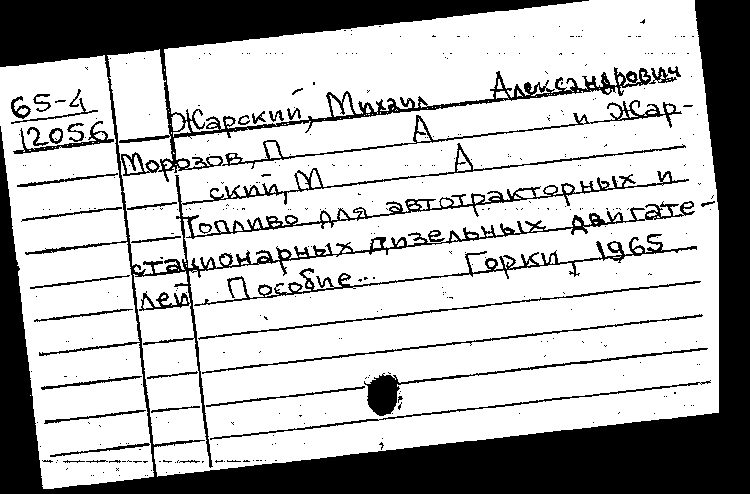 65-4
12056
Жарский, Михаил Александрович
Морозов, П А и Жар-
ский, М А
Топливо для автотракторных и
стационарных дизельных двигате-
лей. Пособие... Горки, 1965.